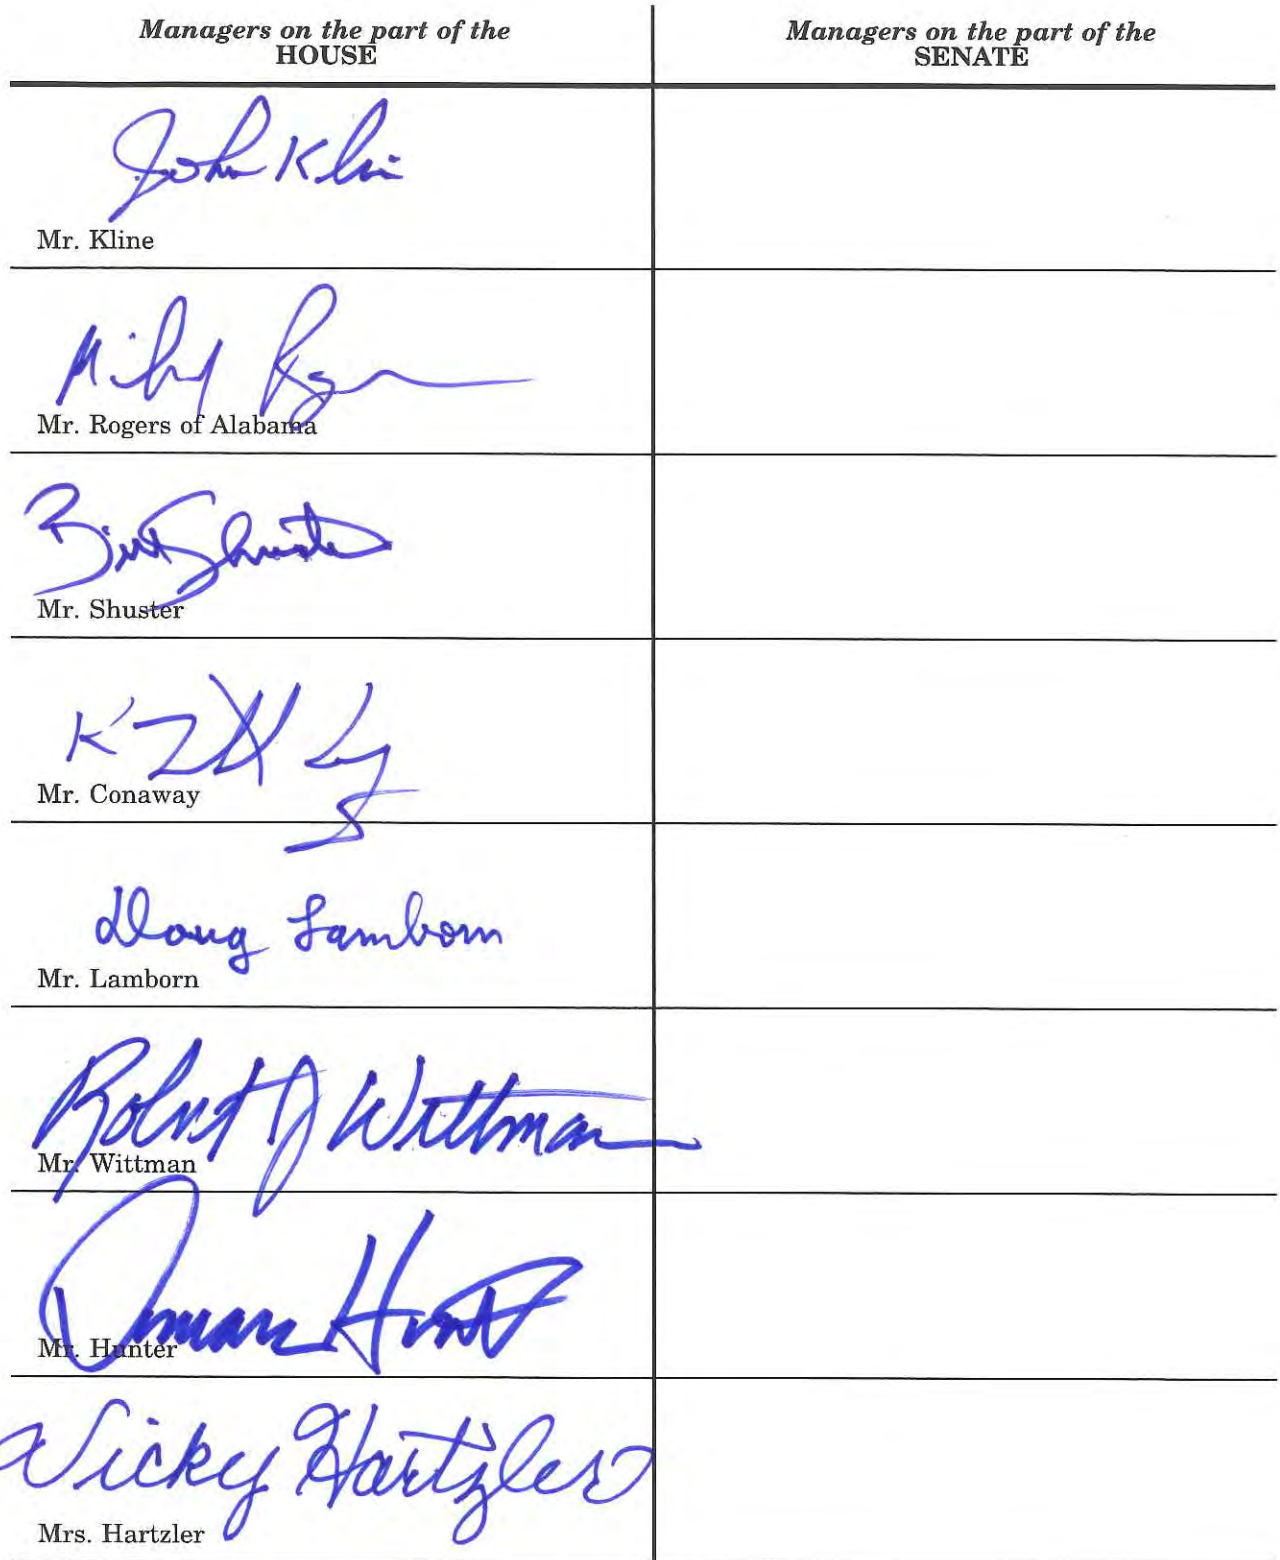 Managers on the part of the
HOUSE
Managers on the part of the
SENATE
John Kline
Mr. Kline
Mr. Rogers of Alabama
Bill Shuster
Mr. Shuster
Mr. Conaway
Doug Lamborn
Mr. Lamborn
Robert J Wittman
Mr. Wittman
Duncan Hunter
Mr. Hunter
Vicky Hartzler
Mrs. Hartzler